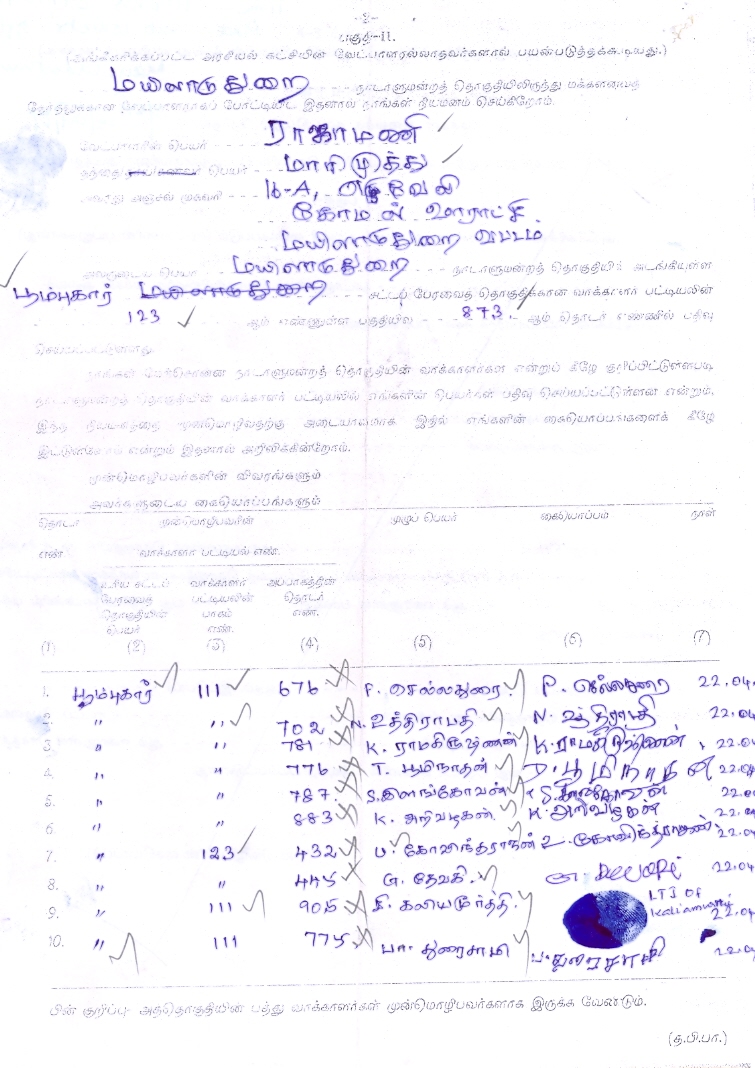 -2-
பகுதி-II.
(அங்கீகரிக்கப்பட்ட அரசியல் கட்சியின் வேட்பாளரல்லாதவர்களால் பயன்படுத்தக்கூடியது.)
மயிலாடுதுறை நாடாளுமன்றத் தொகுதியிலிருந்து மக்களவைத்
தேர்தலுக்கான வேட்பாளராகப் போட்டியிட இதனால் நாங்கள் நியமனம் செய்கிறோம்.
வேட்பாளரின் பெயர் ராஜாமணி
தந்தை/தாய்/கணவர் பெயர் மாரிமுத்து
அவரது அஞ்சல் முகவரி 16-A,
கோமல் ஊராட்சி.
மயிலாடுதுறை வட்டம்
அவருடைய பெயர் மயிலாடுதுறை நாடாளுமன்றத் தொகுதியில் அடங்கியுள்ள
பூம்புகார் மயிலாடுதுறை சட்டப் பேரவைத் தொகுதிக்கான வாக்காளர் பட்டியலின்
123 ஆம் எண்ணுள்ள பகுதியில் 873. ஆம் தொடர் எண்ணில் பதிவு
செய்யப்பட்டுள்ளது.
நாங்கள் மேற்சொன்ன நாடாளுமன்றத் தொகுதியின் வாக்காளர்கள் என்றும் கீழே குறிப்பிட்டுள்ளபடி
நாடாளுமன்றத் தொகுதியின் வாக்காளர் பட்டியலில் எங்களின் பெயர்கள் பதிவு செய்யப்பட்டுள்ளன என்றும்,
இந்த நியமனத்தை முன்மொழிவதற்கு அடையாளமாக இதில் எங்களின் கையொப்பங்களைக் கீழே
இட்டுள்ளோம் என்றும் இதனால் அறிவிக்கின்றோம்.
முன்மொழிபவர்களின் விவரங்களும்
அவர்களுடைய கையொப்பங்களும்
தொடர் முன்மொழிபவரின் முழுப் பெயர் கையொப்பம் நாள்
எண் வாக்காளர் பட்டியல் எண்.
உரிய சட்டப் வாக்காளர் அப்பாகத்தின்
பேரவைத் பட்டியலின் தொடர்
தொகுதியின் பாகம் எண்.
பெயர் எண்.
(1) (2) (3) (4) (5) (6) (7)
1. பூம்புகார் 111 676 P. செல்லதுரை P. செல்லதுரை 22.04.
2. " " 702 N. உத்திராபதி N. உத்திராபதி 22.04
3. " " 781 K. ராமகிருஷ்ணன் K. ராமகிருஷ்ணன் 22.04
4. " " 776 T. பூமிநாதன் T. பூமிநாதன் 22.04
5. " " 787. S. இளங்கோவன் S. இளங்கோவன் 22.04
6. " " 883 K. அறிவழகன் K. அறிவழகன் 22.04
7. " 123 432 உ. கோவிந்தராஜன் உ. கோவிந்தராஜன் 22.04
8. " " 445 G. தேவகி. G. தேவகி 22.04
9. " 111 905 சி. கலியமூர்த்தி. LTI of Kaliamurthy 22.04
10. " 111 775 பா. துரைசாமி பா. துரைசாமி 22.04
பின் குறிப்பு: அத்தொகுதியின் பத்து வாக்காளர்கள் முன்மொழிபவர்களாக இருக்க வேண்டும்.
(த.பி.பா.)